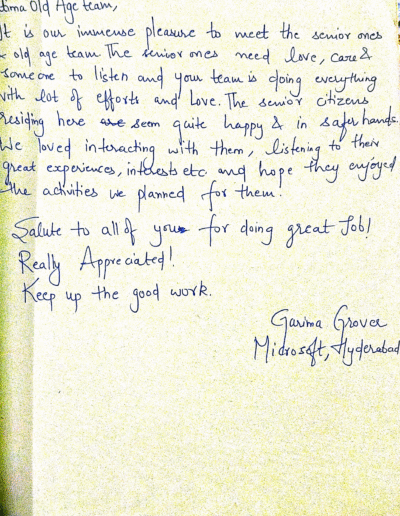 Old Age team,
It is our immense pleasure to meet the senior ones
old age team. The senior ones need love, care &
someone to listen and your team is doing everything
with lot of efforts and Love. The senior citizens
residing here seem quite happy & in safer hands.
We loved interacting with them, listening to their
great experiences, interests etc. and hope they enjoyed
the activities we planned for them.
Salute to all of you for doing great Job!
Really Appreciated!
Keep up the good work.
Garima Grover
Microsoft, Hyderabad